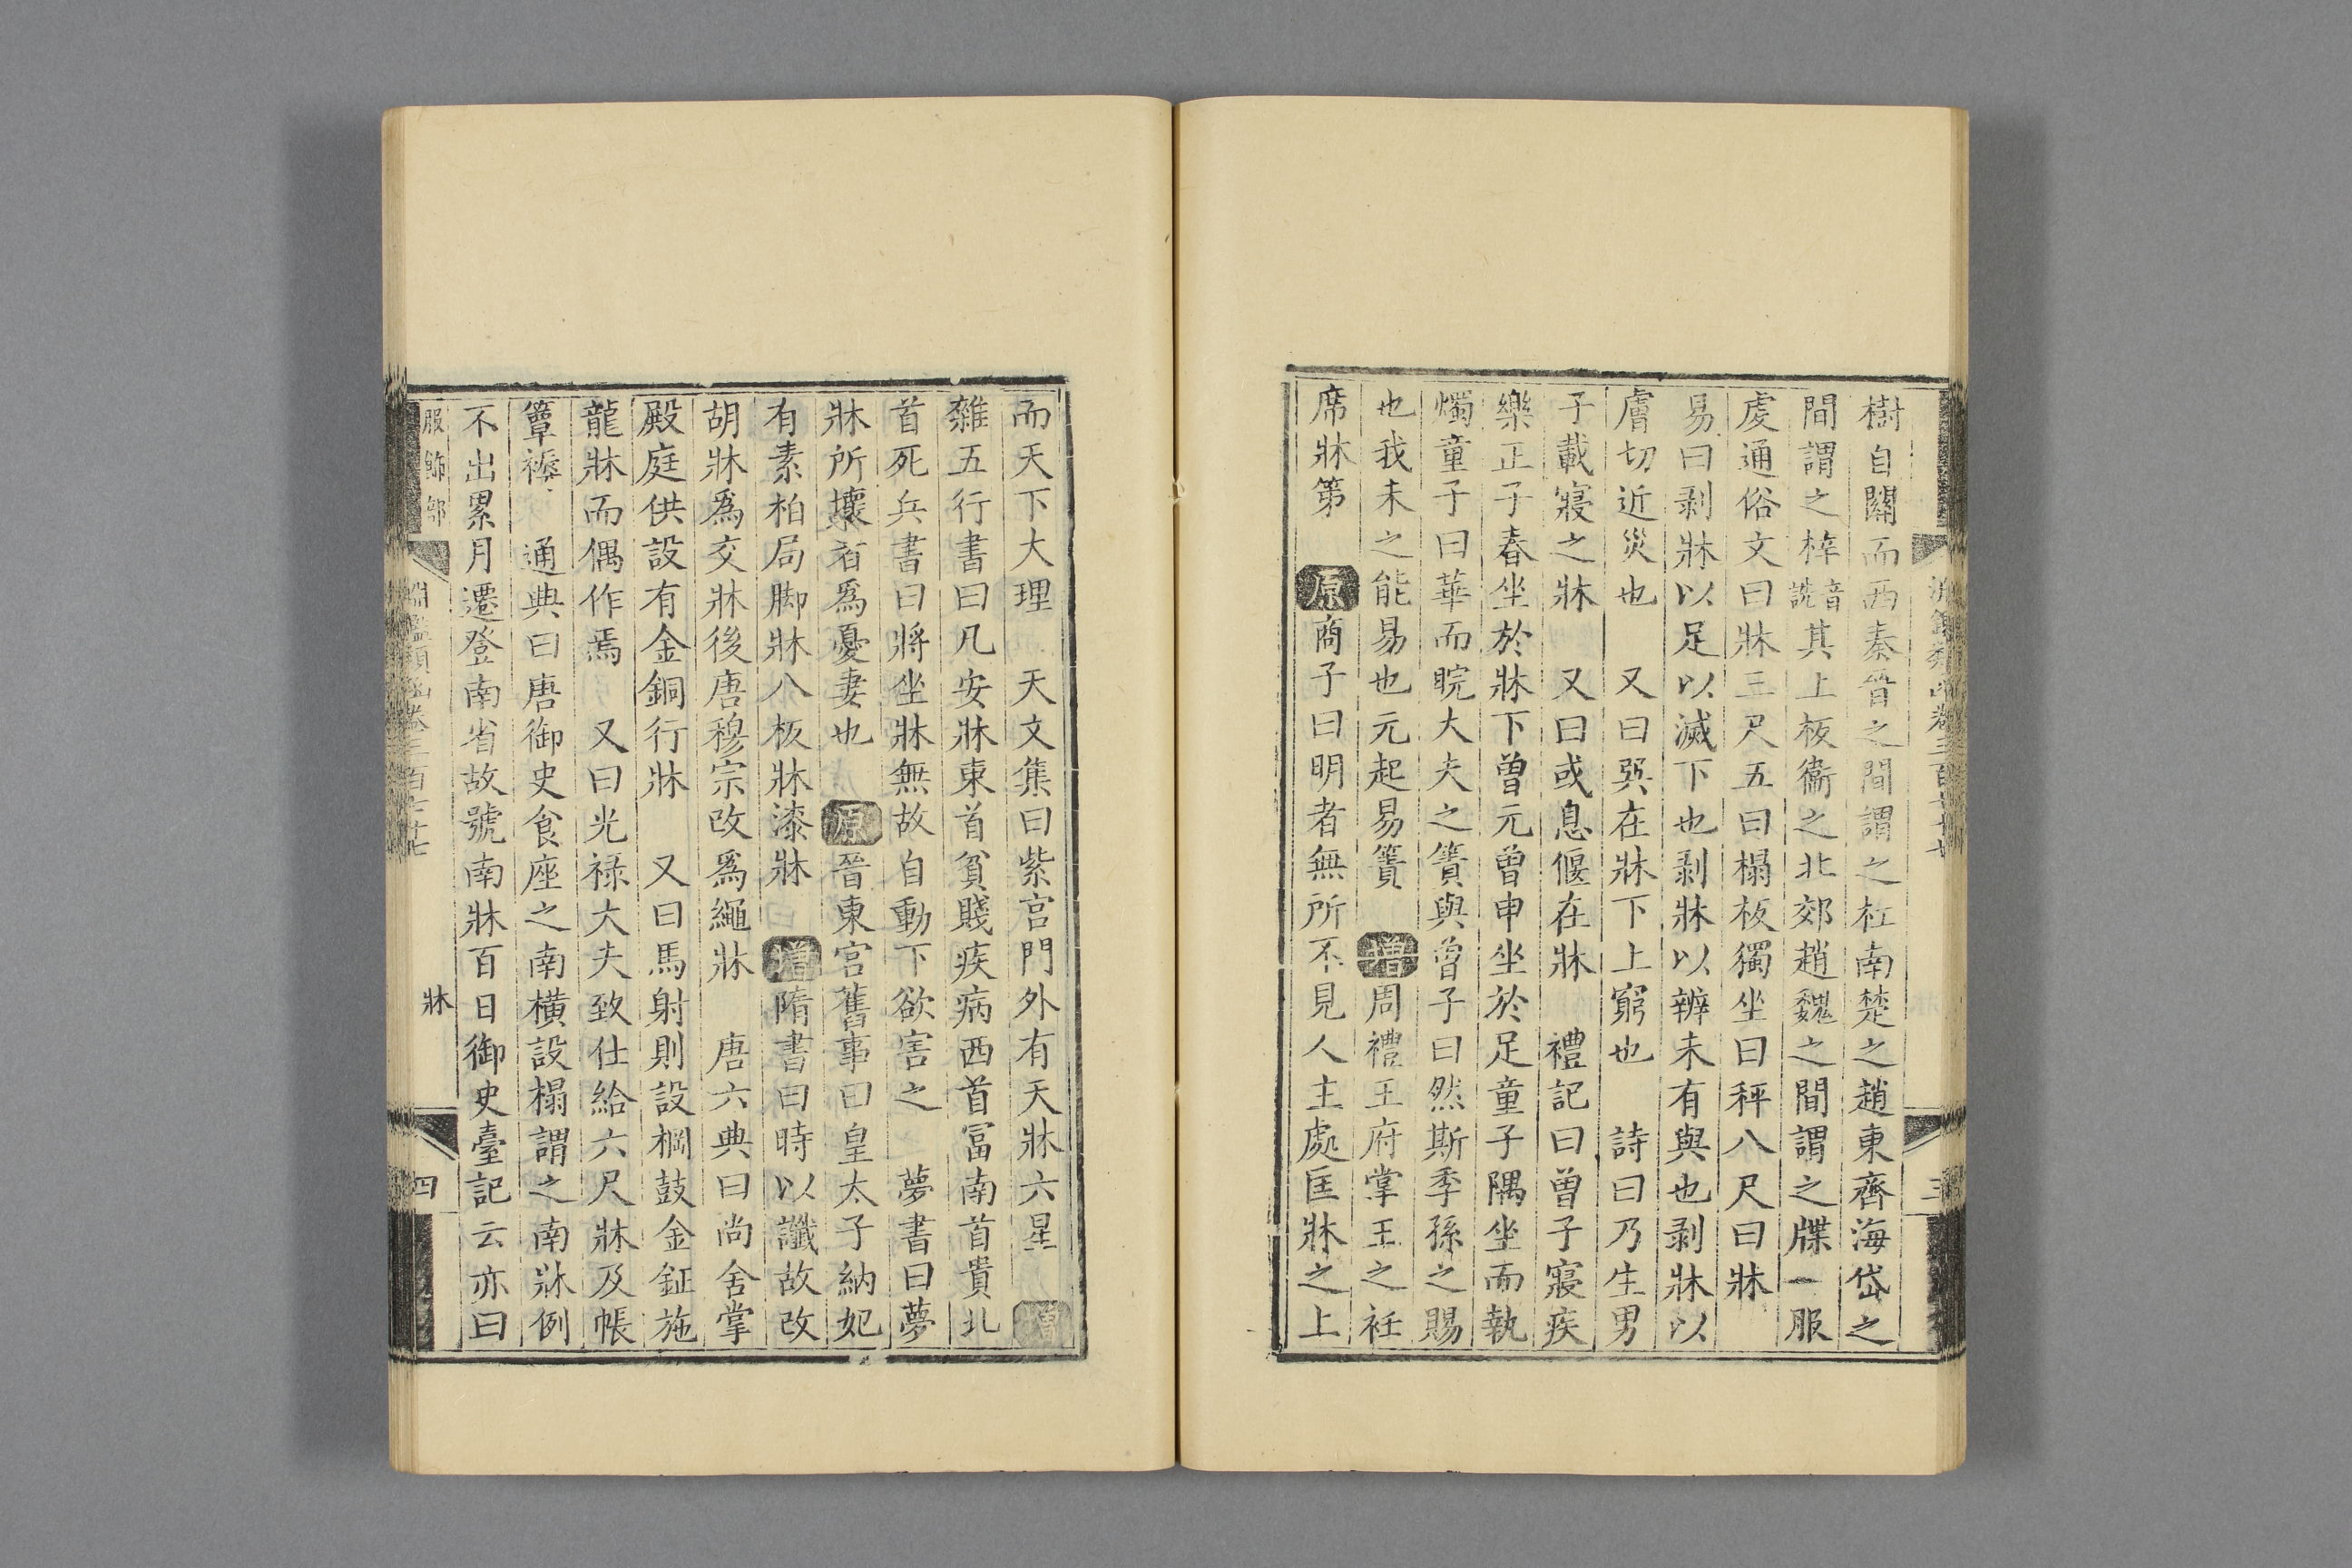 樹自關而西秦晉之間謂之杠南楚之趙東齊海岱之
間謂之樺音詵其上板衞之北郊趙魏之間謂之牒一服
虔通俗文曰牀三尺五曰榻板獨坐曰秤八尺曰牀
易曰剥牀以足以滅下也剥牀以辨未有與也剥牀以
膚切近災也 又曰巽在牀下上窮也 詩曰乃生男
子載寢之牀 又曰或息偃在牀 禮記曰曾子寢疾
樂正子春坐於牀下曾元曾申坐於足童子隅坐而執
燭童子曰華而睆大夫之簀與曾子曰然斯季孫之賜
也我未之能易也元起易簀 增周禮王府掌王之衽
席牀第 原商子曰明者無所不見人主處匡牀之上
而天下大理 天文集曰紫宫門外有天牀六星 增
雜五行書曰凡安牀東首貧賤疾病西首冨南首貴北
首死兵書曰將坐牀無故自動下欲害之 夢書曰夢
牀所壞者爲憂妻也 原晉東宫舊事曰皇太子納妃
有素柏局脚牀八板牀漆牀 增隋書曰時以讖故改
胡牀爲交牀後唐穆宗改爲繩牀 唐六典曰尚舍掌
殿庭供設有金銅行牀 又曰馬射則設棡鼓金鉦施
龍牀而偶作焉 又曰光禄大夫致仕給六尺牀及帳
簟褥 通典曰唐御史食座之南横設榻謂之南牀例
不出累月遷登南省故號南牀百日御史臺記云亦曰
服飾部 牀 四